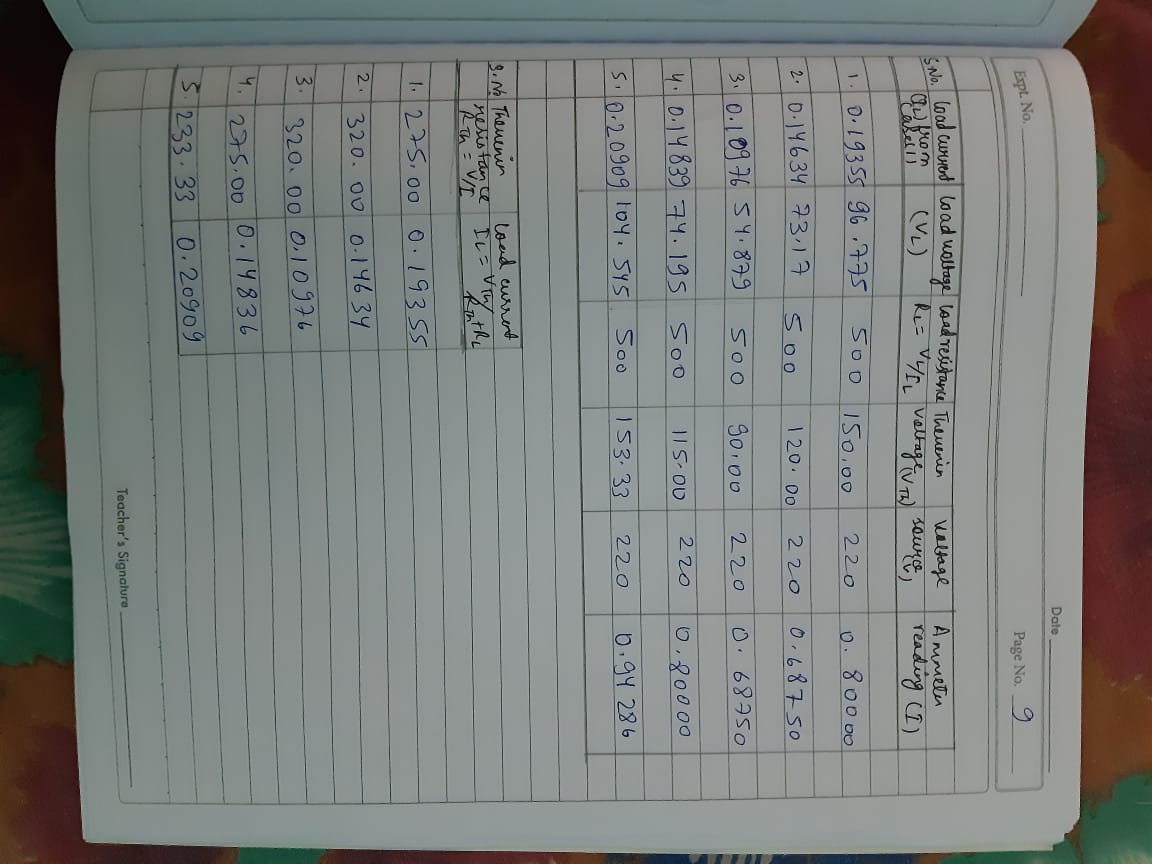 Date
Expt. No.
Page No. 9
S.No. Load current (IL) from Case(1) Load voltage (VL) Load resistance RL = VL/IL Thevenin voltage (VTh) Voltage source (V) Ammeter reading (I)
1. 0.19355 96.775 500 150.00 220 0.80000
2. 0.14634 73.17 500 120.00 220 0.68750
3. 0.10976 54.879 500 90.00 220 0.68750
4. 0.14839 74.195 500 115.00 220 0.80000
5. 0.20909 104.545 500 153.33 220 0.94286
S.No Thevenin resistance RTh = V/I Load current IL = VTh/RTh+RL
1. 275.00 0.19355
2. 320.00 0.14634
3. 320.00 0.10976
4. 275.00 0.14836
5. 233.33 0.20909
Teacher's Signature